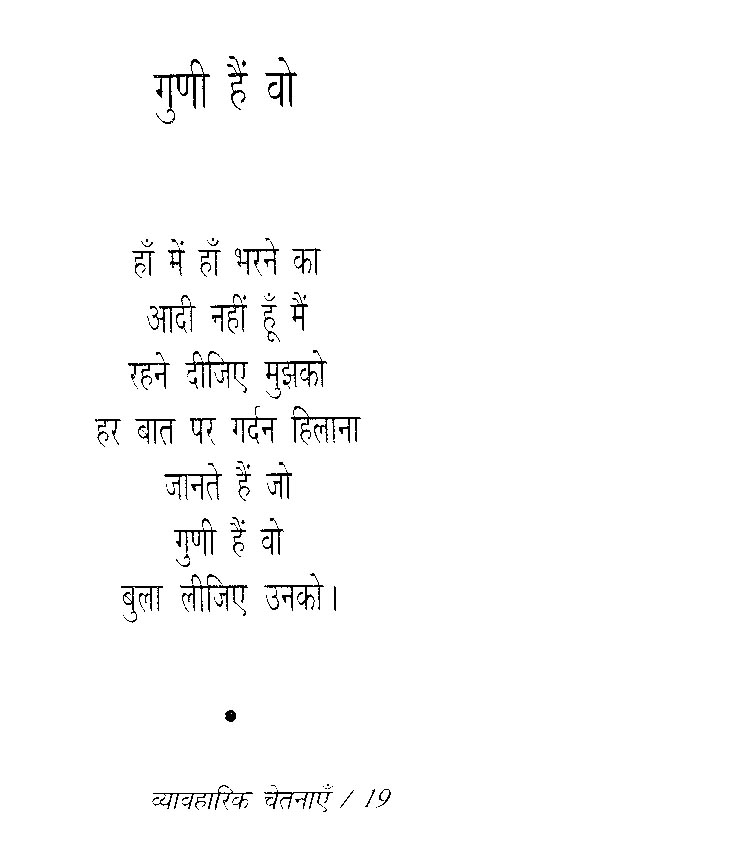 गुणी हैं वो
हाँ में हाँ भरने का
आदी नहीं हूँ मैं
रहने दीजिए मुझको
हर बात पर गर्दन हिलाना
जानते हैं जो
गुणी हैं वो
बुला लीजिए उनको।
व्यावहारिक चेतनाएँ / 19